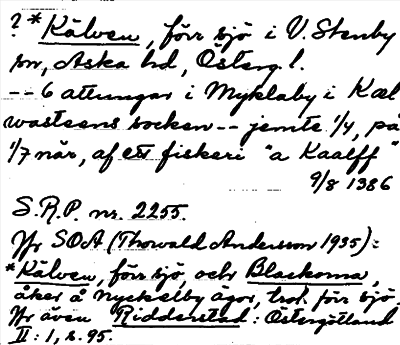 ? *Kälven, förr sjö i V. Stenby
sn, Aska hd, Österg. l.
-- 6 attungar i Myklaby i Kæl
wasteens socken -- jemte 1/4, på
1/7 när, af ett fiskeri "a Kaalff"
9/8 1386
S.R.P. nr. 2255.
Jfr SOÄ (Thorvald Andersson 1935):
*Kälven, förr sjö, och Blackorna,
åker å Nyckelby ägor, trol. förr sjö.
Jfr även Ridderstad: Östergötland
II: 1, s. 95.